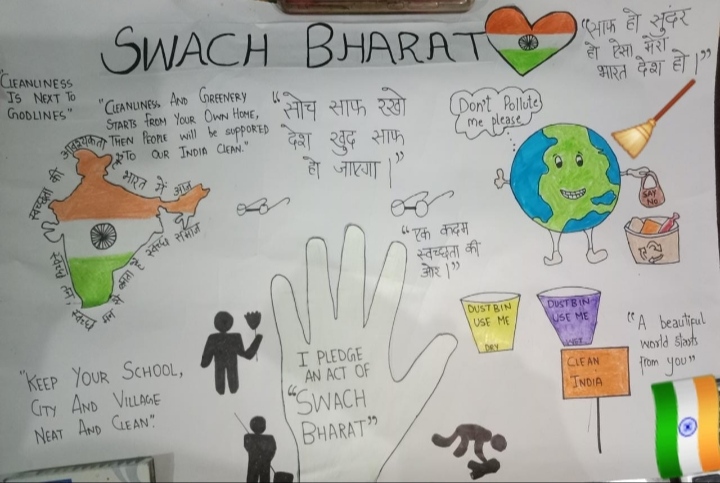 SWACH BHARAT
"साफ हो सुंदर
हो ऐसा मेरा
भारत देश हो।"
"CLEANLINESS
IS NEXT TO
GODLINES"
"CLEANLINESS AND GREENERY
STARTS FROM YOUR OWN HOME,
THEN PEOPLE will be SUPPORTED
TO OUR INDIA CLEAN."
"सोच साफ रखो
देश खुद साफ
हो जाएगा।"
Don't Pollute
me please
SAY
NO
स्वच्छता की आवश्यकता है
भारत में आज
स्वच्छ तन
स्वच्छ मन से
स्वच्छ समाज
"एक कदम
स्वच्छता की
ओर।"
DUSTBIN
USE ME
DRY
DUSTBIN
USE ME
WET
CLEAN
INDIA
"A beautiful
world starts
from you"
I PLEDGE
AN ACT OF
"SWACH
BHARAT"
"KEEP YOUR SCHOOL,
CITY AND VILLAGE
NEAT AND CLEAN".